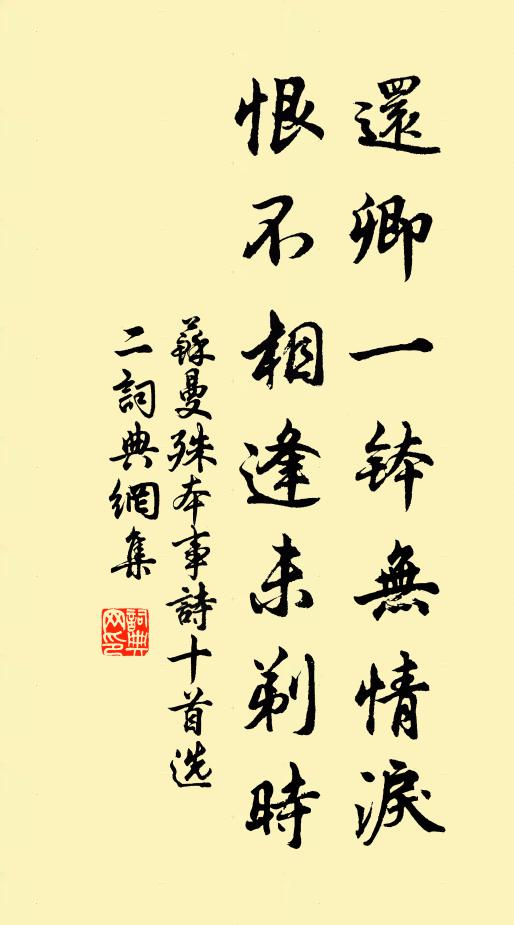 還卿一鉢無情淚
恨不相逢未剃時
蘇曼殊本事詩十首选
二詞典網集
詞典
网印